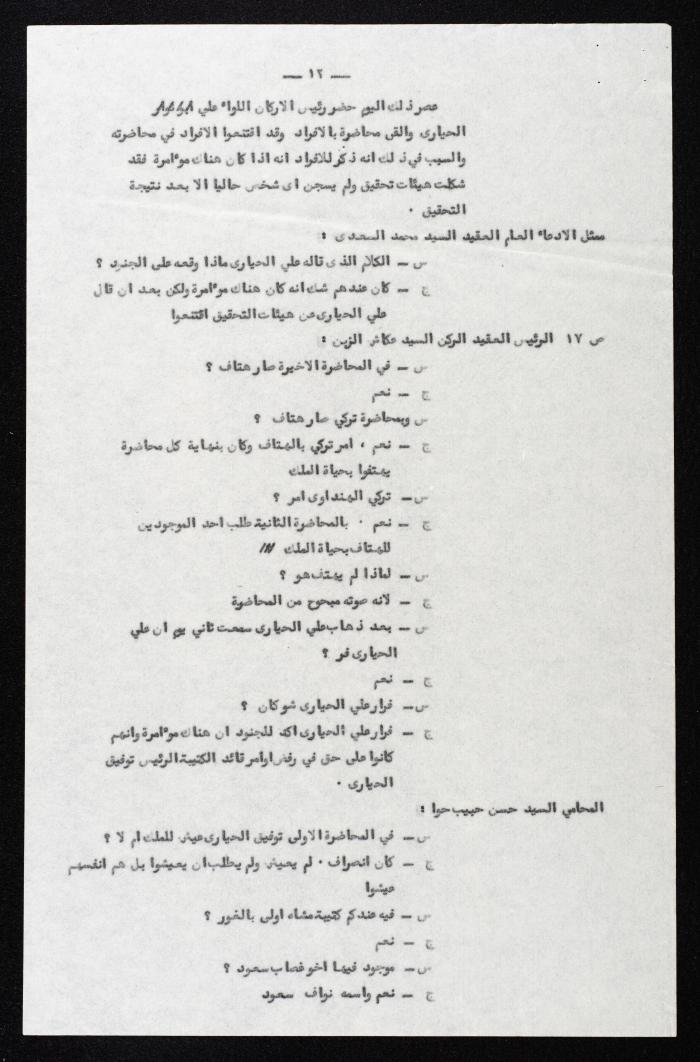 — ١٢ —
عصر ذلك اليوم حضر رئيس الاركان اللواء علي
الحيارى والقى محاضرة بالافراد وقد اقتنعوا الافراد في محاضرته
والسبب في ذلك انه ذكر للافراد انه اذا كان هناك موءامرة فقد
شكلت هيئات تحقيق ولم يسجن اى شخص حاليا الا بعد نتيجة
التحقيق .
ممثل الادعاء العام العقيد السيد محمد السعدى :
س — الكلام الذى قاله علي الحيارى ماذا وقعه على الجنود ؟
ج — كان عندهم شك انه كان هناك موءامرة ولكن بعد ان قال
علي الحيارى عن هيئات التحقيق اقتنعوا
ص ١٧ الرئيس العقيد الركن السيد عكاش الزبن :
س — في المحاضرة الاخيرة صار هتاف ؟
ج — نعم
س وبمحاضرة تركي صار هتاف ؟
ج — نعم ، امر تركي بالهتاف وكان بنهاية كل محاضرة
يهتفوا بحياة الملك
س — تركي الهنداوى امر ؟
ج — نعم . بالمحاضرة الثانية طلب احد الموجودين
للهتاف بحياة الملك
س — لماذا لم يهتف هو ؟
ج — لانه صوته مبحوح من المحاضرة
س — بعد ذهاب علي الحيارى سمعت ثاني يوم ان علي
الحيارى فر ؟
ج — نعم
س — فرار علي الحيارى شو كان ؟
ج — فرار علي الحيارى اكد للجنود ان هناك موءامرة وانهم
كانوا على حق في رفض اوامر قائد الكتيبة الرئيس توفيق
الحيارى .
المحامي السيد حسن حبيب حوا :
س — في المحاضرة الاولى توفيق الحيارى عيش للملك ام لا ؟
ج — كان انصراف . لم يعيش ولم يطلب ان يعيشوا بل هم انفسهم
عيشوا
س — فيه عندكم كتيبة مشاه اولى بالغور ؟
ج — نعم
س — موجود فيها اخو غصاب سعود ؟
ج — نعم واسمه نواف سعود